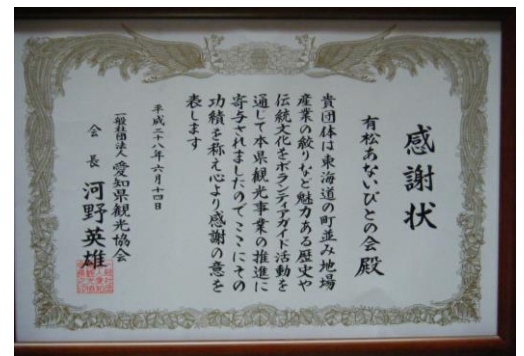 感謝状
有松あないびとの会 殿
貴団体は東海道の町並み地場
産業の絞りなど魅力ある歴史や
伝統文化をボランティアガイド活動を
通して本県観光事業の推進に
寄与されましたのでここにその
功績を称え心より感謝の意を
表します
平成二十八年六月十四日
一般社団法人 愛知県観光協会
会長 河野英雄